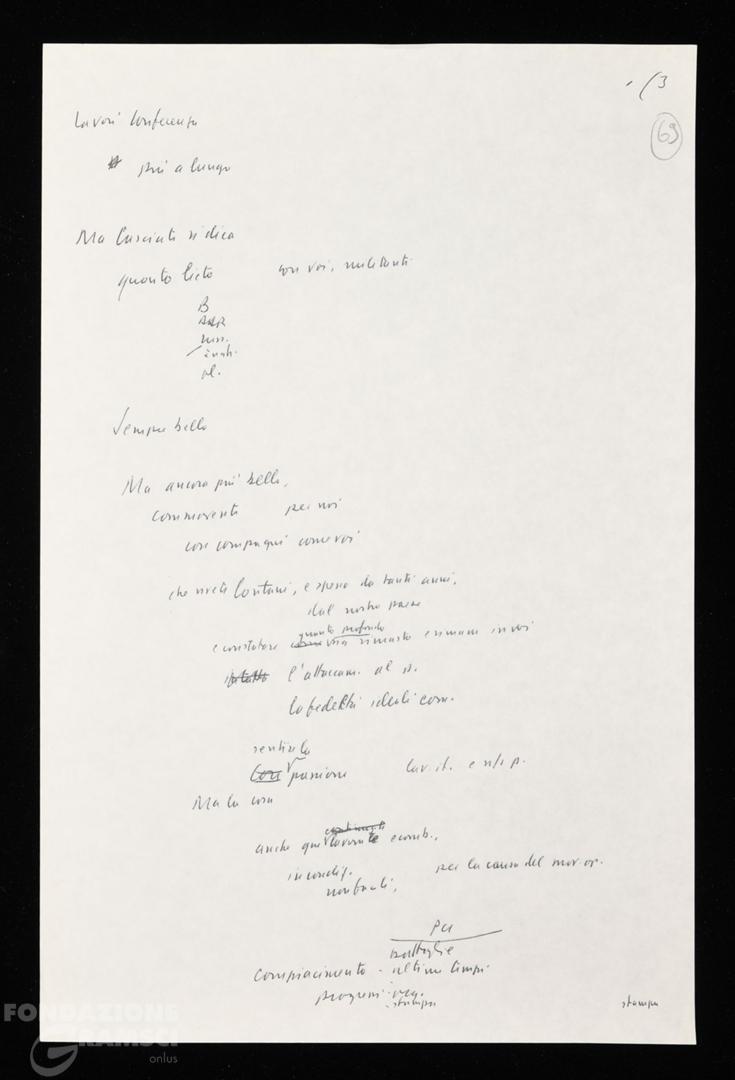 /3
69
Lavori Conferenza
più a lungo
Ma lasciate si dica
quanto lieto con voi, militanti
B
naz.
pl.
Sempre bello
Ma ancora più bello,
commovente per noi
con compagni come voi
che vivete lontani, e spesso da tanti anni,
dal nostro paese
quanto profondo
e constatare come sia rimasto e rimane in voi
l'attaccam. al p.
la fedeltà ideali com.
sentirla
Con passione lav. it. e n/s p.
Ma la cosa
continuate
anche qui lavorate e comb.,
per la causa del mov. op.
non facili,
PCI
battaglie
compiacimento - ultimi tempi
progressi - org.
- stampa
stampa
FONDAZIONE
GRAMSCI
onlus